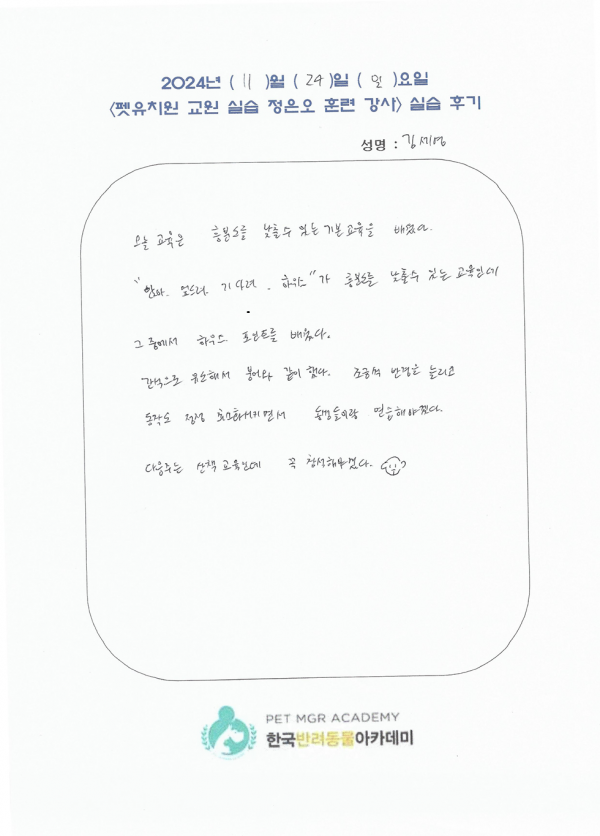 2024년 ( 11 )월 ( 24 )일 ( 일 )요일
<펫유치원 교원 실습 정은오 훈련 강사> 실습 후기
성명 : 김세영
오늘 교육은 흥분도를 낮출수 있는 기본교육을 배웠다.
"앉아. 엎드려. 기다려. 하우스"가 흥분도를 낮출수 있는 교육인데
그 중에서 하우스 포인트를 배웠다.
간식으로 유인해서 붕어와 같이 했다. 조금씩 반경을 늘리고
동작도 점점 최소화시키면서 동경둘이랑 연습해야겠다.
다음주는 산책 교육인데 꼭 참석해야겠다.
PET MGR ACADEMY
한국반려동물아카데미